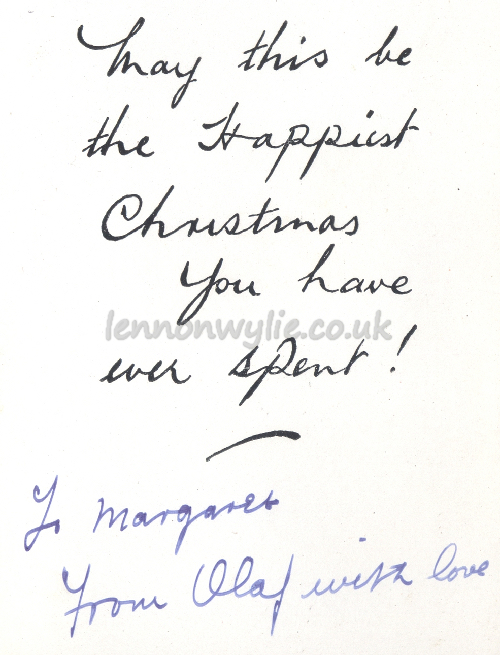 May this be
the Happiest
Christmas
You have
lennonwylie.co.uk
ever spent!
To Margaret
From Olaf with love